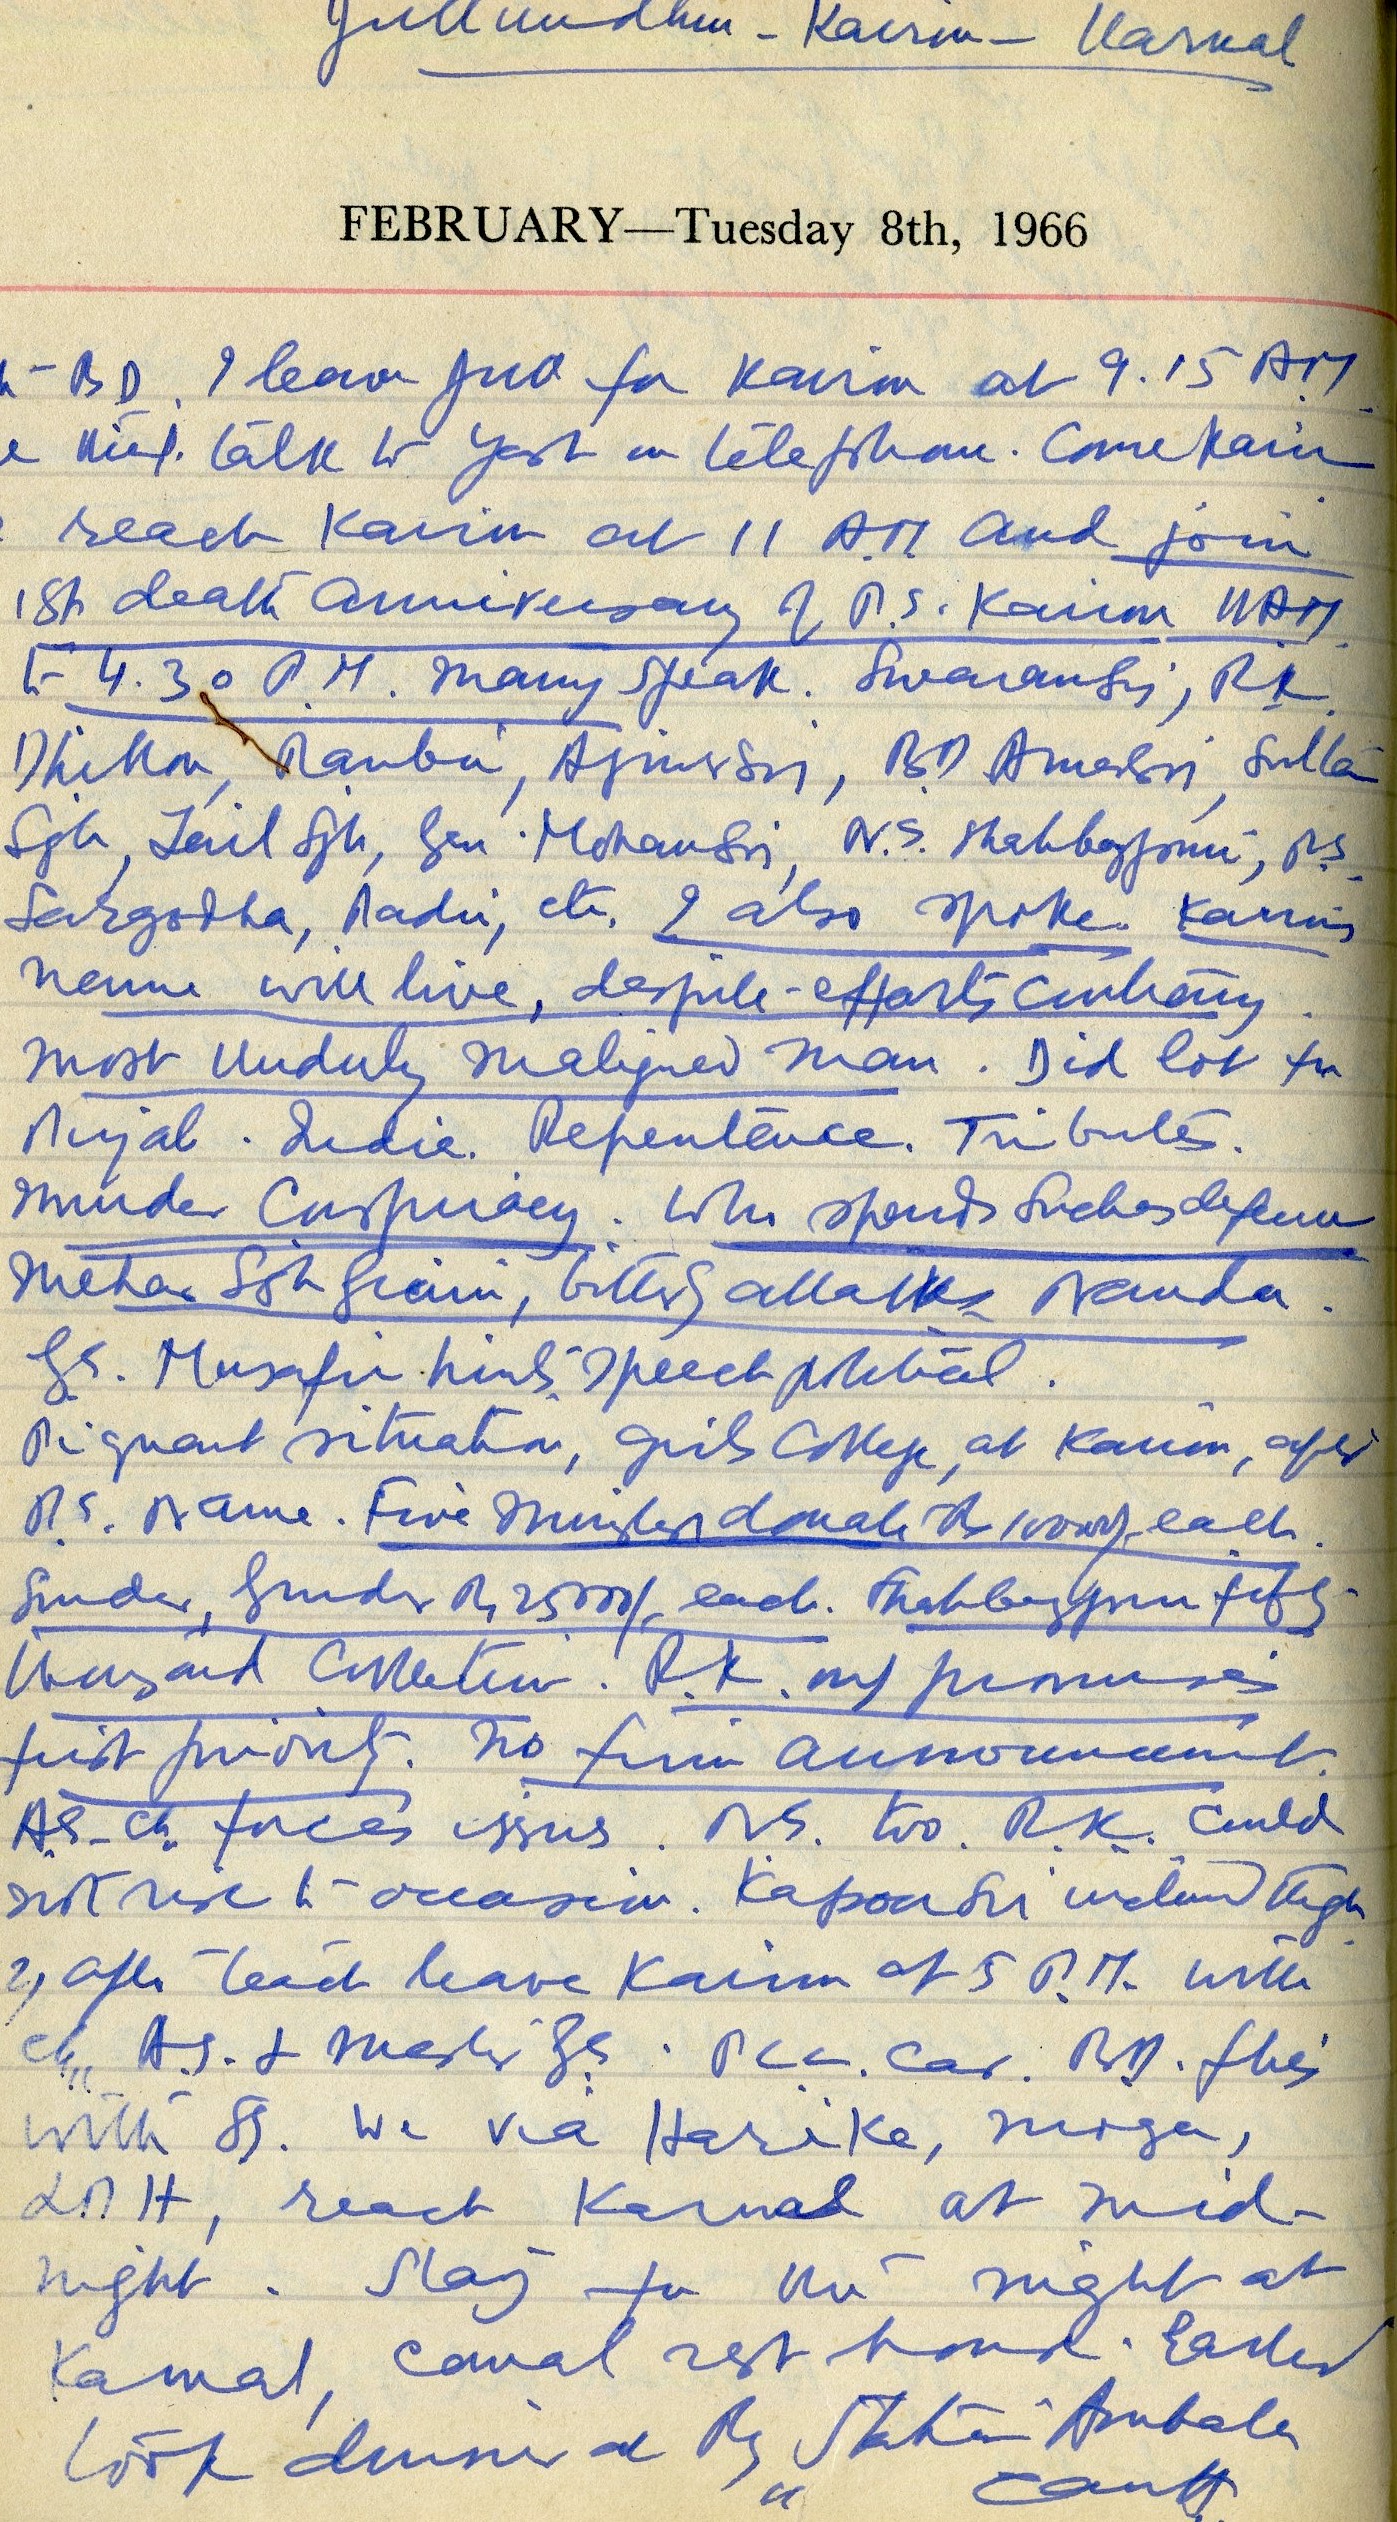 Jullundhur - Kairon - Karnal
FEBRUARY—Tuesday 8th, 1966
BD. I leave Jull for Kairon at 9.15 AM.
talk to Yash on telephone. Come Kairon
reach Kairon at 11 A.M. and join
1st death anniversary of P.S. Kairon 11AM
to 4.30 P.M. Many speak. SwaranSgh, R.K.
Dhillon, Ranbir, AjmerSgh, BD AmarSgh, Sultan
Sgh, Zail Sgh, Gen. MohanSgh, N.S. Shahbazpuri, P.S.
Sargodha, etc. I also spoke. Kairons
name will live, despite efforts contrary.
Most unduly maligned man. Did lot for
Punjab. India. Repentance. Tributes.
Murder Conspiracy. Who spends defence
Mehar Sgh bitterly attacks Nanda.
GS. Musafir hints speech political.
Piquant situation, girls College, at Kairon, after
P.S. Name. Five Ministers donate Rs each.
Surder, Gurder Rs 2500/- each. Shahbazpuri fifty
thousand Collection. R.K. only promises
first priority. No firm announcement.
AS. Ch. forces issue. NS. too. R.K. could
not rise to occasion. KapoorSgh
after leave Kairon at 5 P.M. with
Ch. A.S. & Master GS. PCC. Car. BD. flies
with SS. We via Harike, Moga,
LDH, reach Karnal at mid-
night. Stay for the night at
Karnal, canal rest house. Earlier
took dinner at Ry Station Ambala
Cantt.